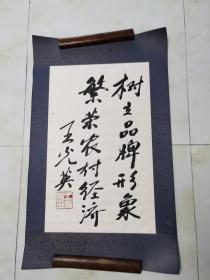 树立品牌形象
繁荣农村经济
王光英